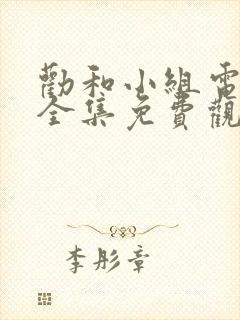 勸和小組電
全集免費觀
李彤章